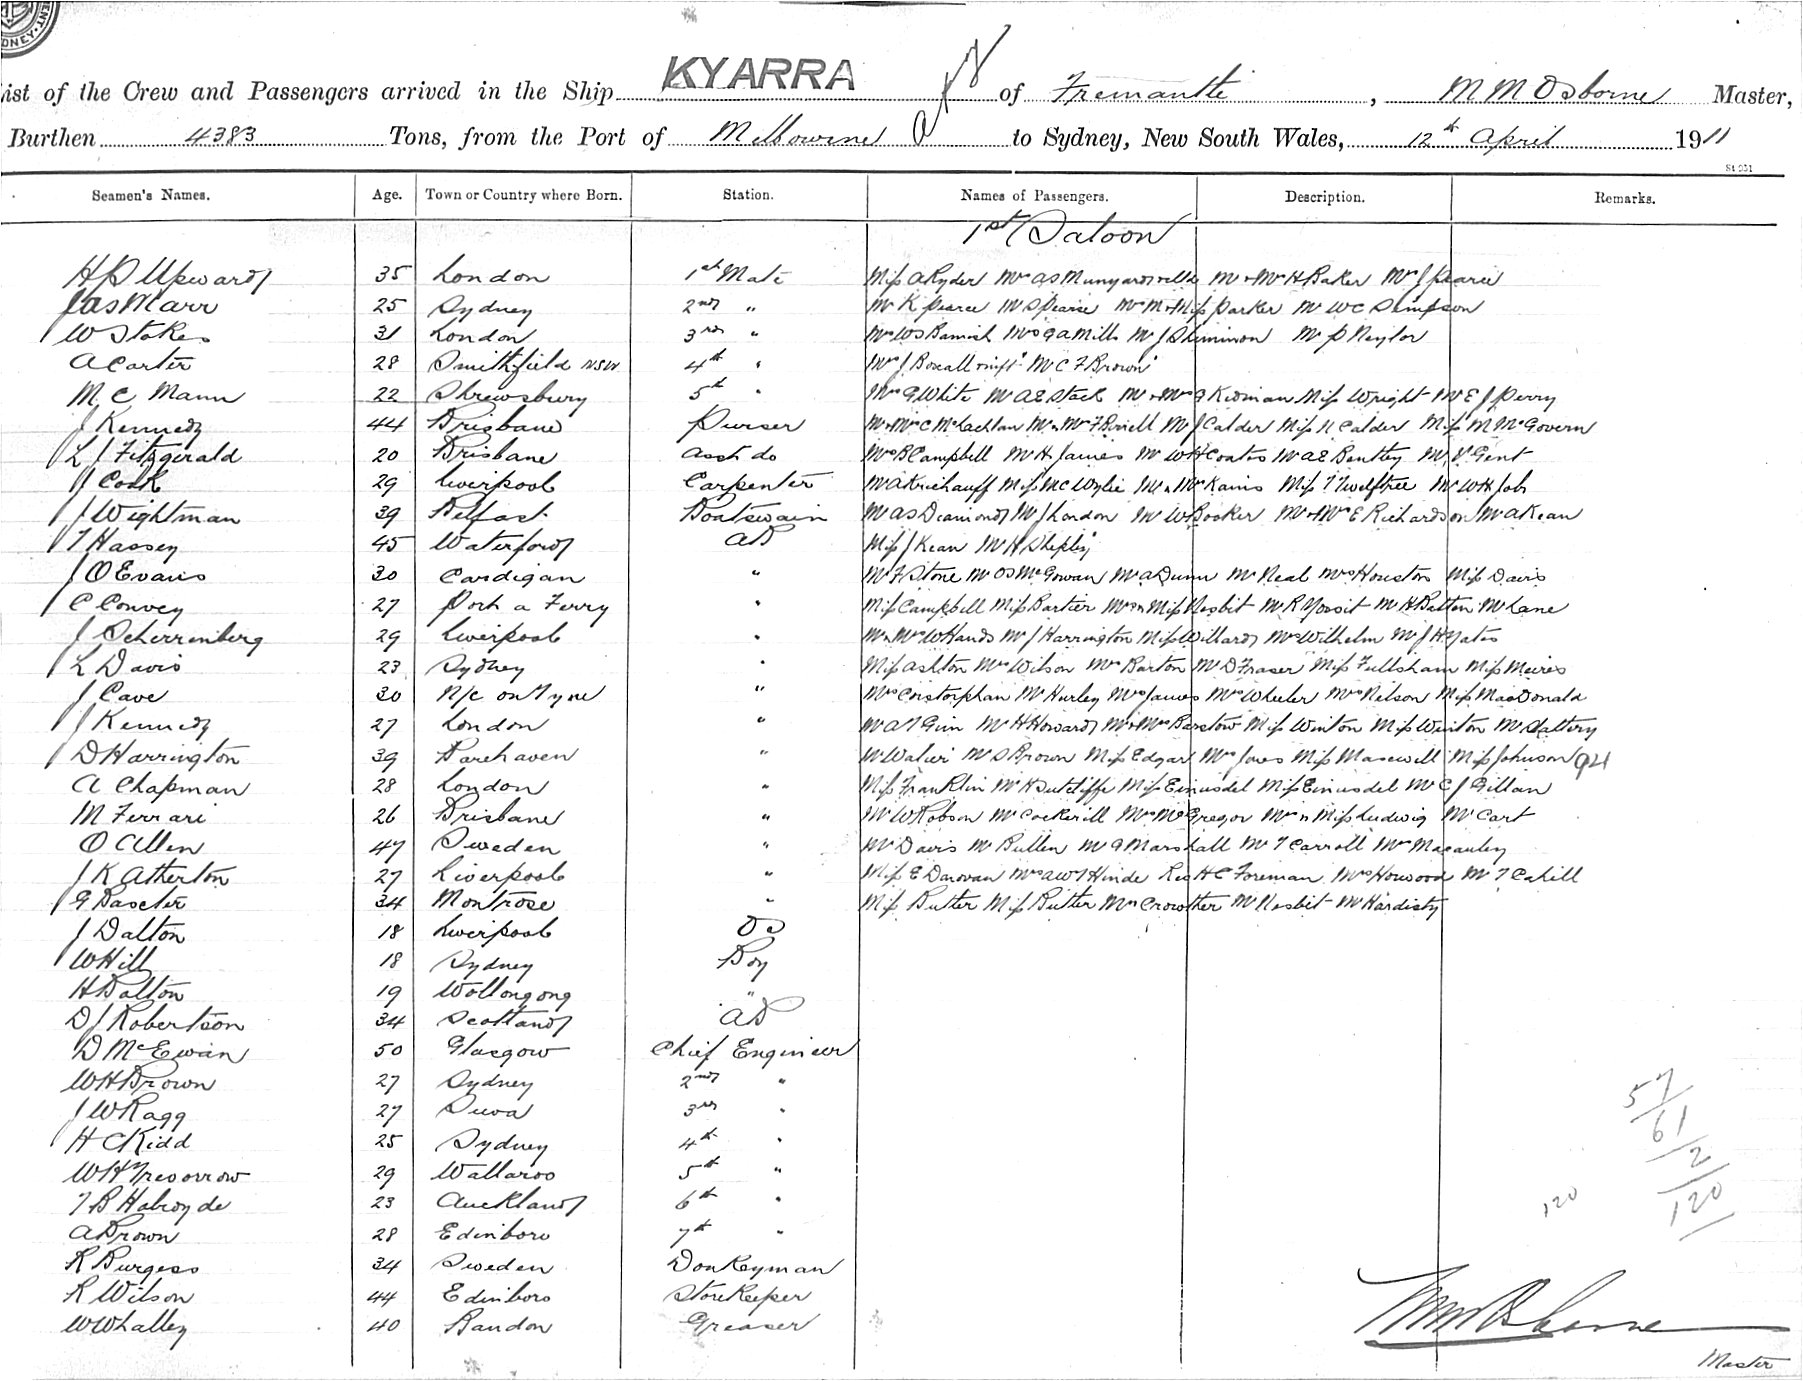 KYARRA
List of the Crew and Passengers arrived in the Ship of Fremantle, M M Osborne Master,
Burthen 4383 Tons, from the Port of Melbourne to Sydney, New South Wales, 12th April 1911
St 951
Seamen's Names. Age. Town or Country where Born. Station. Names of Passengers. Description. Remarks.
1st Saloon
H P Upward 35 London 1st Mate Miss A Ryder Mr & Mr H Baker Mr J Pearce
Jas Marr 25 Sydney 2nd " Mr K Pearce Parker Mr W C Simpson
W Stokes 31 London 3rd " Mr P Naylor
A Carter 28 Smithfield NSW 4th " Mr J Boxall Mr C F Brown
M C Mann 22 Shrewsbury 5th " Mr G White Mr A E Stack Mr & Mrs Kidman Miss Wright Mr E J Perry
J Kennedy 44 Brisbane Purser Mr & Mrs C McLachlan Mr J Calder Miss N Calder Miss M McGovern
L J Fitzgerald 20 Brisbane Asst do Mrs B Campbell Mr H James Mr W H Coates Mr A E Bentley Mr V Gent
J Cook 29 Liverpool Carpenter Mr A Krichauff Miss McWylie Miss T Twelftree Mr W H Job
J Wightman 39 Belfast Boatswain Mr A S Diamond Mr J London Mr W Booker Mr & Mrs E Richardson Mr A Kean
T Hassey 45 Waterford AB Miss J Kean Mr H Shepley
J O Evans 30 Cardigan " Mr F Stone Mr O S McGowan Mr A Dunn Mr Neal Mrs Houston Miss Davis
C Convey 27 Port a Ferry " Miss Campbell Miss Bartier Nesbit Mr H Batten Mr Lane
J Scherrenberg 29 Liverpool " Mr & Mrs W Hands Mr J Harrington Miss Willard Mrs Wilhelm Mr J H Yates
L Davis 23 Sydney " Miss Ashton Mrs Wilson Mrs Barton Mr D Fraser Miss Fullsham Miss Meires
J Cave 30 N/c on Tyne " Mrs Corstorphan Mr Hurley Mrs James Mrs Wheeler Mrs Nelson Miss MacDonald
J Kennedy 27 London " Mr A T Ginn Mr H Howard Mr & Mrs Barstow Miss Winton Miss Winton Mr Slattery
D Harrington 39 Barehaven " Mr S Brown Miss Edgar Mrs Jones Miss Maxwell Miss Johnson 94
A Chapman 28 London " Miss Franklin Mr H Sutcliffe Miss Einusdel Miss Einusdel Mr C J Gillan
M Ferrari 26 Brisbane " Mr W Robson Mr Cockerill Mrs McGregor Mrs & Miss Ludwig Mr Cart
O Allen 47 Sweden " Mr Davis Mr Bullen Mr G Marshall Mr T Carroll Mr Macauley
J K Atherton 27 Liverpool " Miss E Darovan Mrs A W T Hinde H C Foreman Mrs Horwood Mr T Cahill
G Baxter 34 Montrose " Miss Butter Miss Butter Mrs Crowther Mr Nesbit Mr Hardisty
J Dalton 18 Liverpool OS
W Hill 18 Sydney Boy
H Dalton 19 Wollongong "
D J Robertson 34 Scotland AB
D McEwan 50 Glasgow Chief Engineer
W H Brown 27 Sydney 2nd "
J W Ragg 27 Suva 3rd "
H C Kidd 25 Sydney 4th "
W H Trevorrow 29 Wallaroo 5th "
T B Halroyde 23 Auckland 6th "
A Brown 28 Edinboro 7th "
R Burgess 34 Sweden Donkeyman
R Wilson 44 Edinboro Storekeeper
W Whalley 40 Bandon Greaser
57
61
2
120
120
M M Osborne
Master